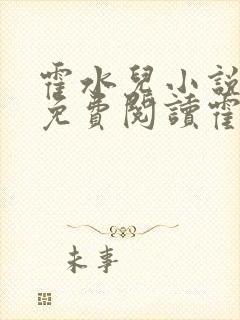 霍水兒小說
免費閱讀霍
未事